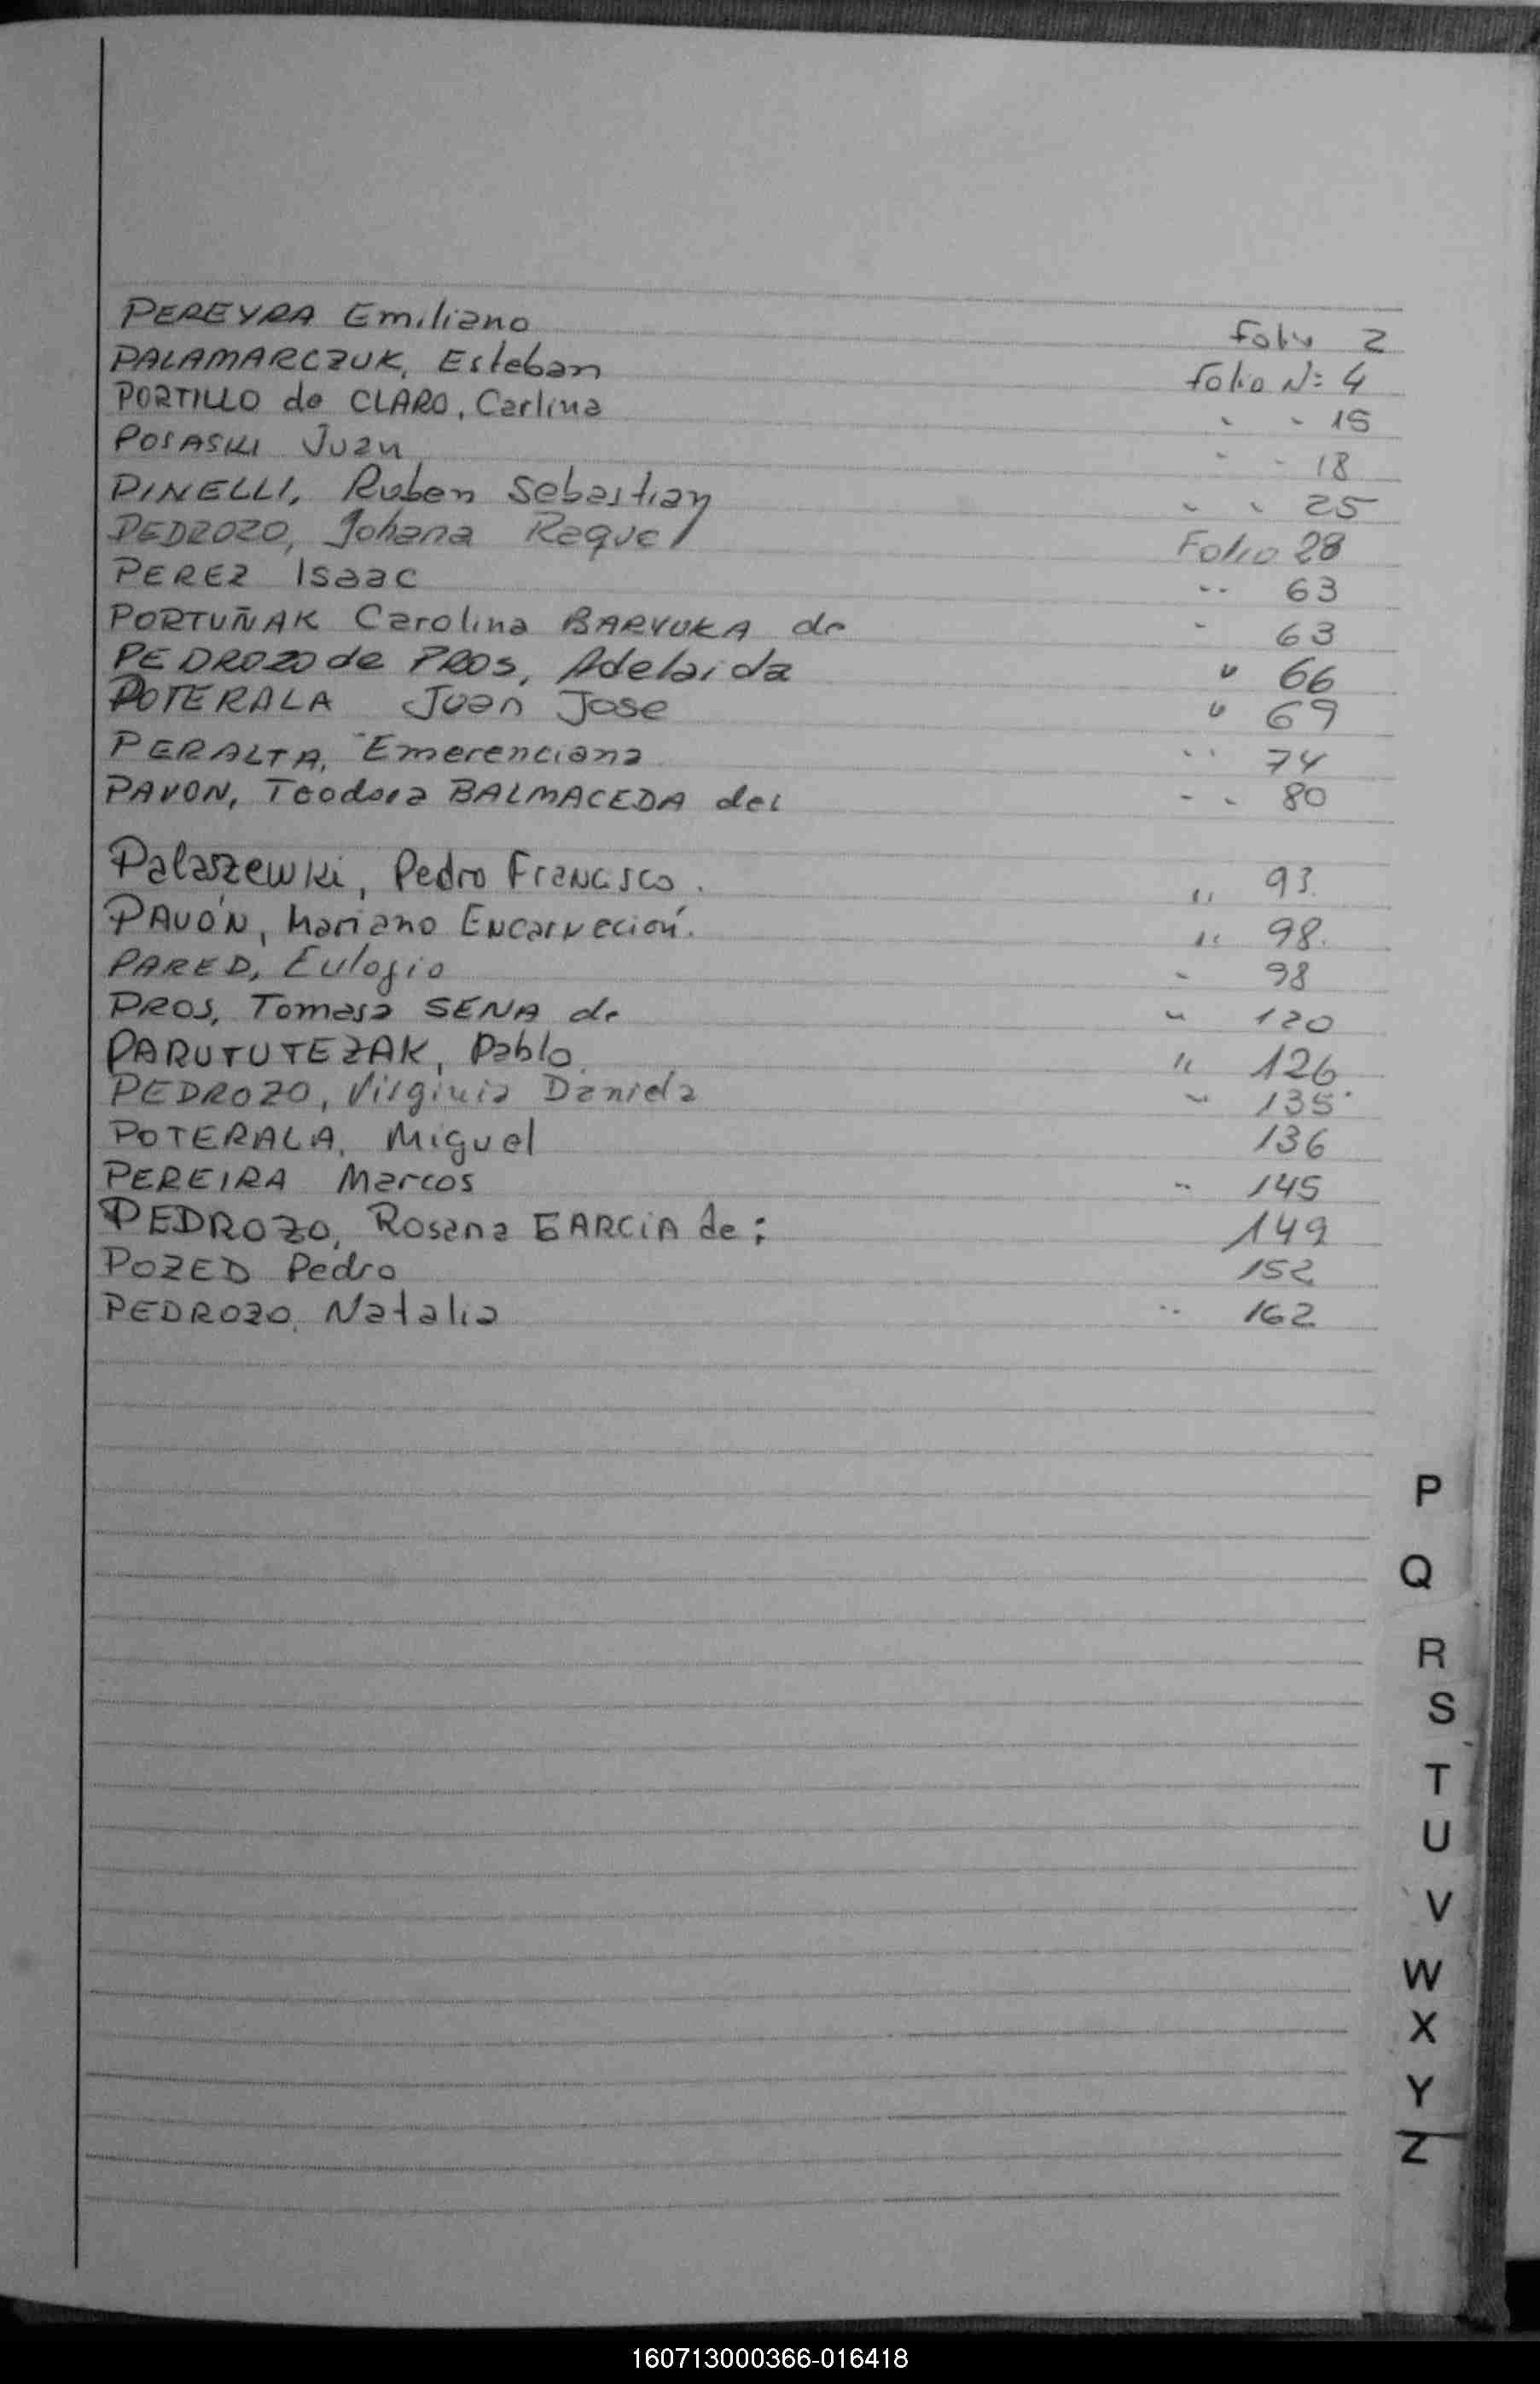 PEREYRA Emiliano Folio 2
PALAMARCZUK, Esteban Folio Nº 4
PORTILLO de CLARO, Carlina " " 15
POSASKI Juan " " 18
PINELLI, Ruben Sebastian " " 25
PEDROZO, Johana Raquel Folio 28
PEREZ Isaac " 63
PORTUÑAK Carolina BARYUKA de " 63
PEDROZO de PROS, Adelaida " 66
POTERALA Juan Jose " 69
PERALTA, Emerenciana " 74
PAVON, Teodora BALMACEDA de: " " 80
Palaszewki, Pedro Francisco. " 93.
PAVÓN, Mariano Encarnación. " 98.
PARED, Eulogio " 98
PROS, Tomasa SENA de " 120
PARUTUTEZAK, Pablo. " 126
PEDROZO, Virginia Daniela " 135
POTERALA, Miguel 136
PEREIRA Marcos " 145
PEDROZO, Rosana GARCIA de: 149
POZED Pedro 152
PEDROZO, Natalia " 162
P
Q
R
S
T
U
V
W
X
Y
Z
160713000366-016418